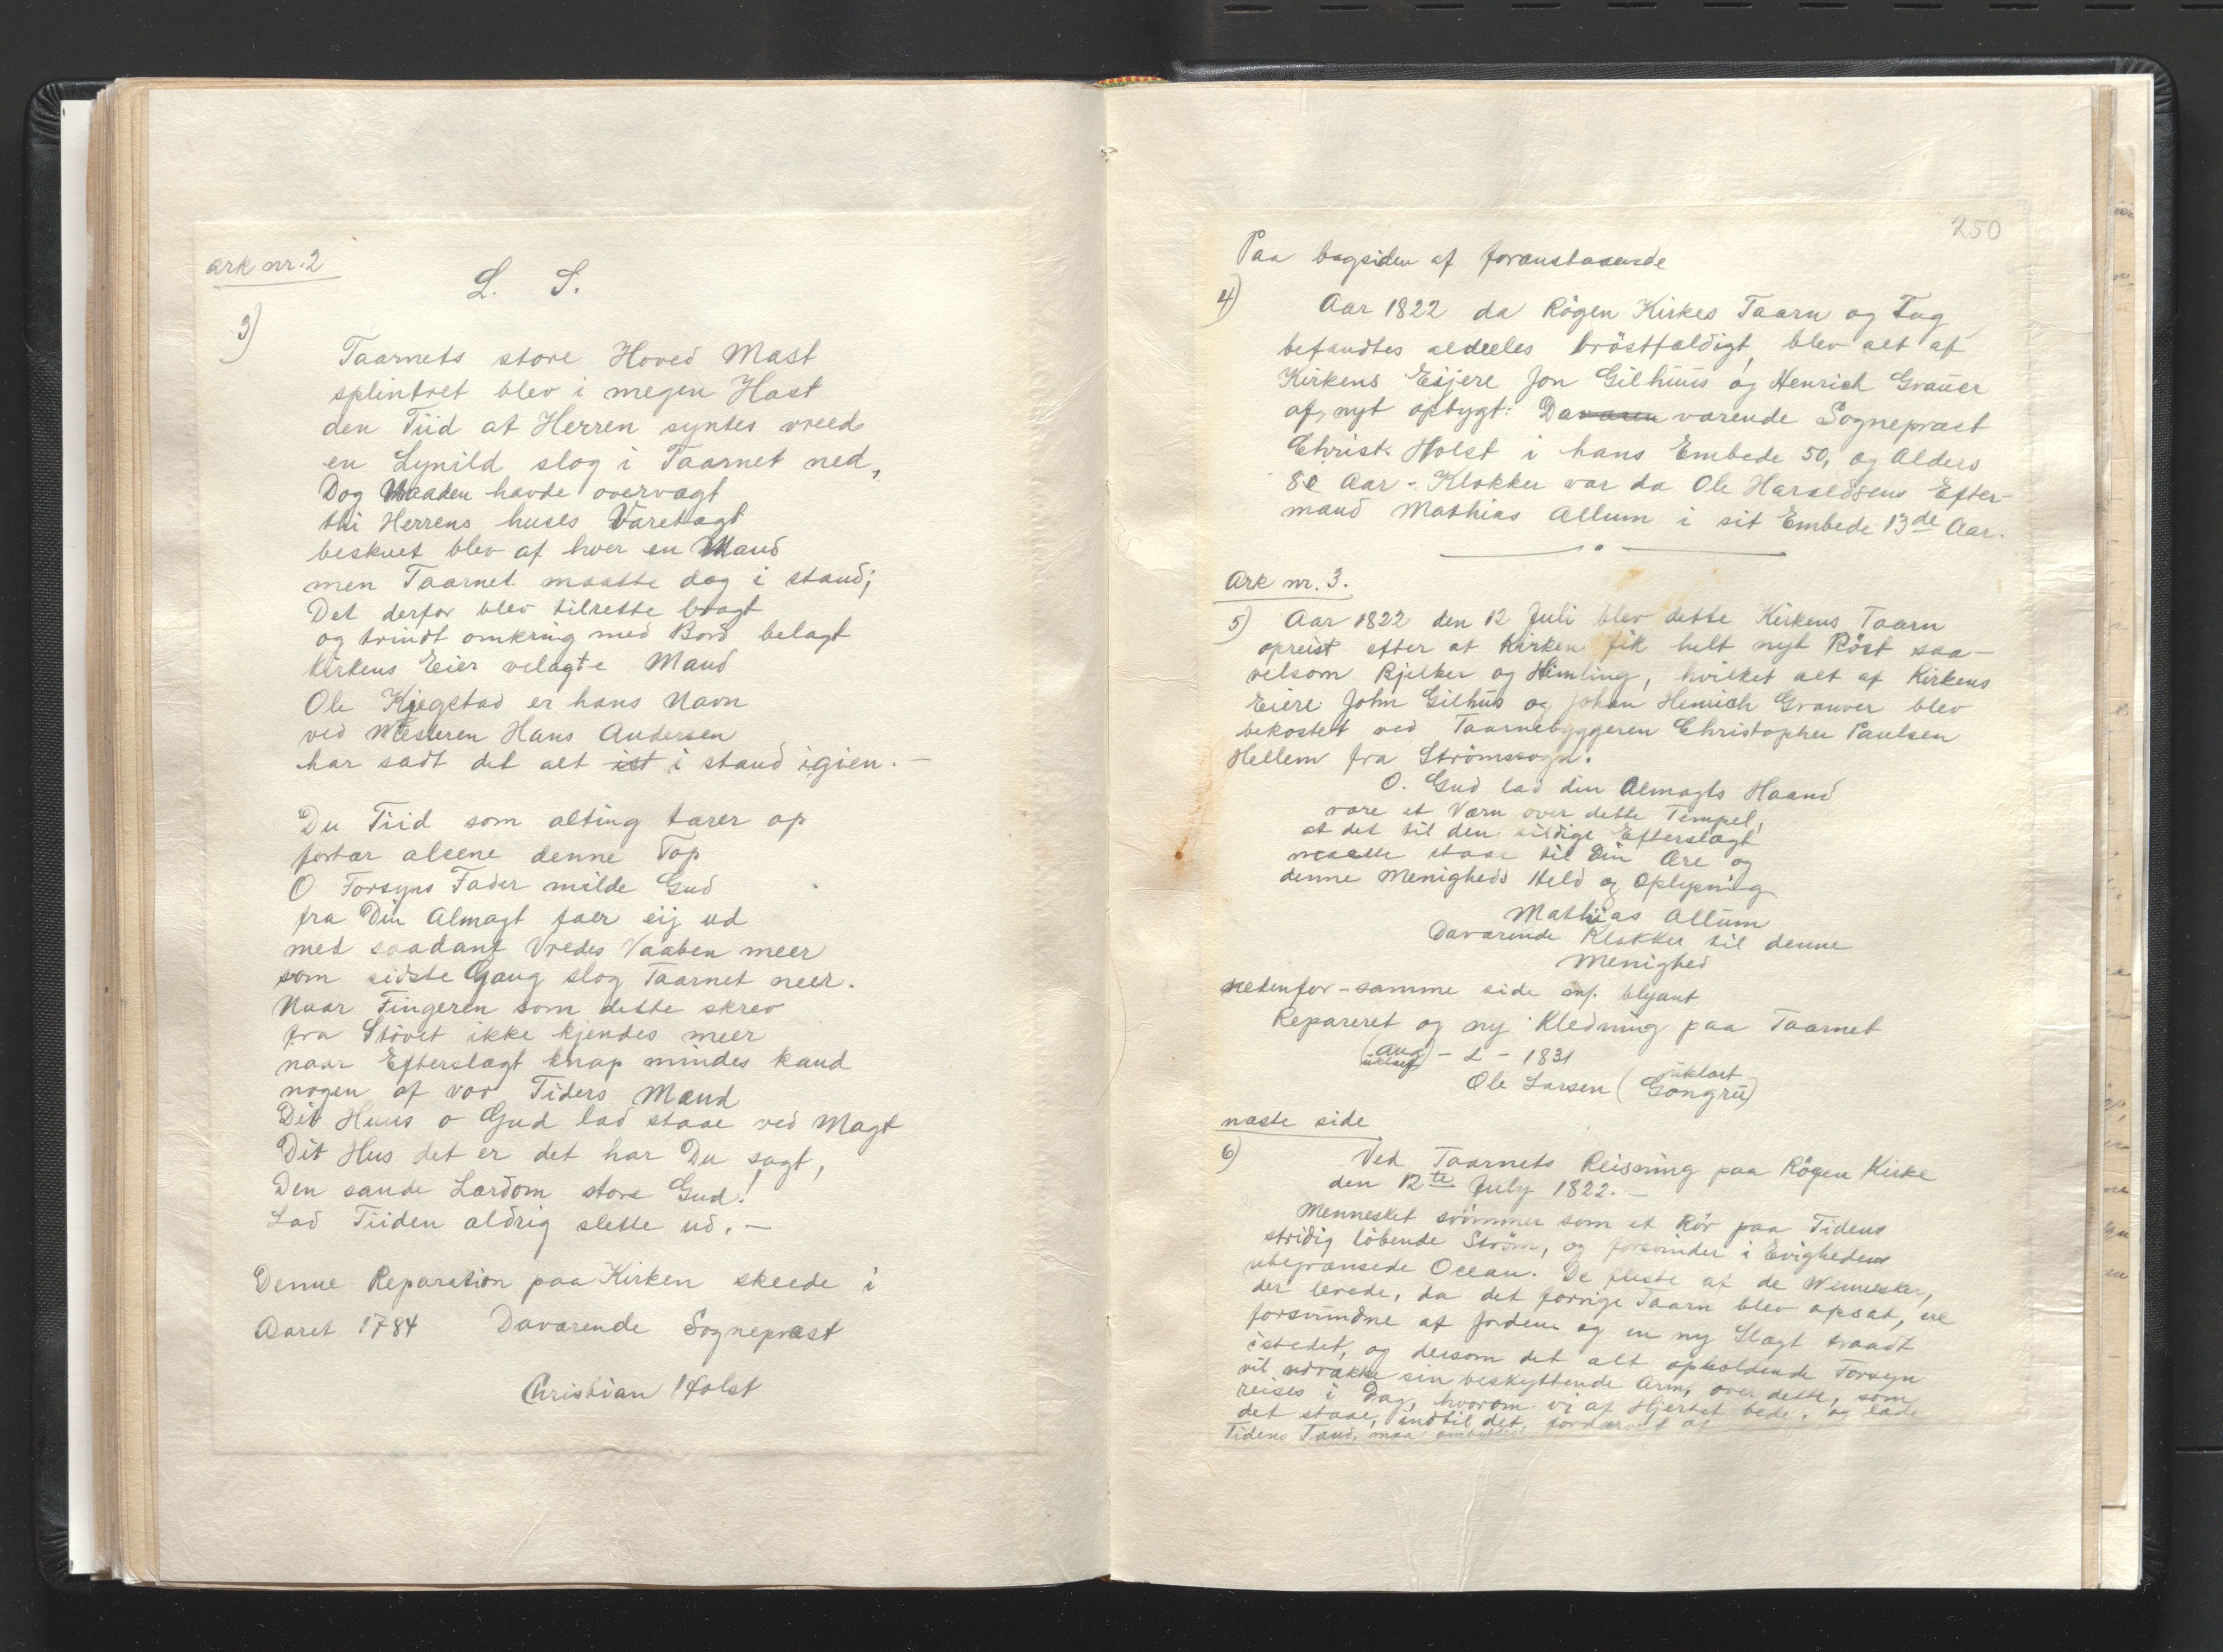 ark nr. 2
L. S.
3)
Taarnets store Hoved Mast
splintret blev i megen Hast
den Tiid at Herren syntes vreed
en Lynild slog i Taarnet ned,
Dog Naaden havde overvægt
thi Herrens huses Varetægt
beskuet blev af hver en Mand
men Taarnet maatte dog i stand;
Det derfor blev tilrette bragt
og trindt omkring med Bord belagt
kirkens Eier velagte Mand
Ole Kjegstad er hans Navn
ved Mesteren Hans Andersen
har sadt det alt ist i stand igien. —
Du Tiid som alting tærer op
fortær aleene denne Top
O Forsyns Fader milde Gud
fra Din Almagt faer eij ud
med saadant Vredes Vaaben meer
som sidste Gang slog Taarnet neer.
Naar Fingeren som dette skrev
fra Støvet ikke kjendes meer
naar Efterslægt knap mindes kand
nogen af vor Tiders Mænd
Dit Huus o Gud lad staae ved Magt
Dit Hus det er det har Du sagt,
Den sande Lærdom store Gud!
Lad Tiiden aldrig slette ud. —
Denne Reparation paa Kirken skeede i
Aaret 1784 Daværende Sognepræst
Christian Holst
250
Paa bagsiden af foranstaaende
4) Aar 1822 da Røgen Kirkes Taarn og Tag
befandtes aldeeles brøstfældigt, blev alt af
Kirkens Eijere Jon Gilhuus og Henrich Grauer
af nyt opbygt: Davaren værende Sognepræst
Christ. Holst i hans Embede 50, og Alders
80 Aar. Klokker var da Ole Haraldsens Efter-
mand Mathias Allum i sit Embede 13de Aar.
Ark nr. 3.
5) Aar 1822 den 12 Juli blev dette Kirkens Taarn
opreist efter at Kirken fik helt nyt Røst saa-
velsom Bjelker og Himling, hvilket alt af Kirkens
Eiere John Gilhus og Johan Henrich Grauver blev
bekostet ved Taarnebyggeren Christopher Paulsen
Hellem fra Strømssogn.
O. Gud lad din Almagts Haand
være et Værn over dette Tempel,
at det til den sildige Efterslægt
maatte staae til Din Ære og
denne Menigheds Held og Oplysning
Mathias Allum
Daværende Klokker til denne
Menighed
nedenfor - samme side m/. blyant
Repareret og ny Kledning paa Taarnet
(Aug) - 2 - 1831
uklart
uklart
Ole Larsen (Gongrü)
næste side
6) Ved Taarnets Reisning paa Røgen Kirke
den 12te July 1822. —
Mennesket svømmer som et Rør paa Tidens
stridig løbende Strøm, og forsvinder i Evighedens
ubegrænsede Ocean. De fleste af de Mennesker,
der levede, da det forrige Taarn blev opsat, ere
forsvundne af Jorden og en ny Slægt traadt
istedet, og dersom det alt opholdende Forsyn
vil udrække sin beskyttende Arm, over dette, som
reises i Dag, hvorom vi af Hjertet bede, og lade
det staae, indtil det, fordærvet af
Tidens Tand, maa ombyttes